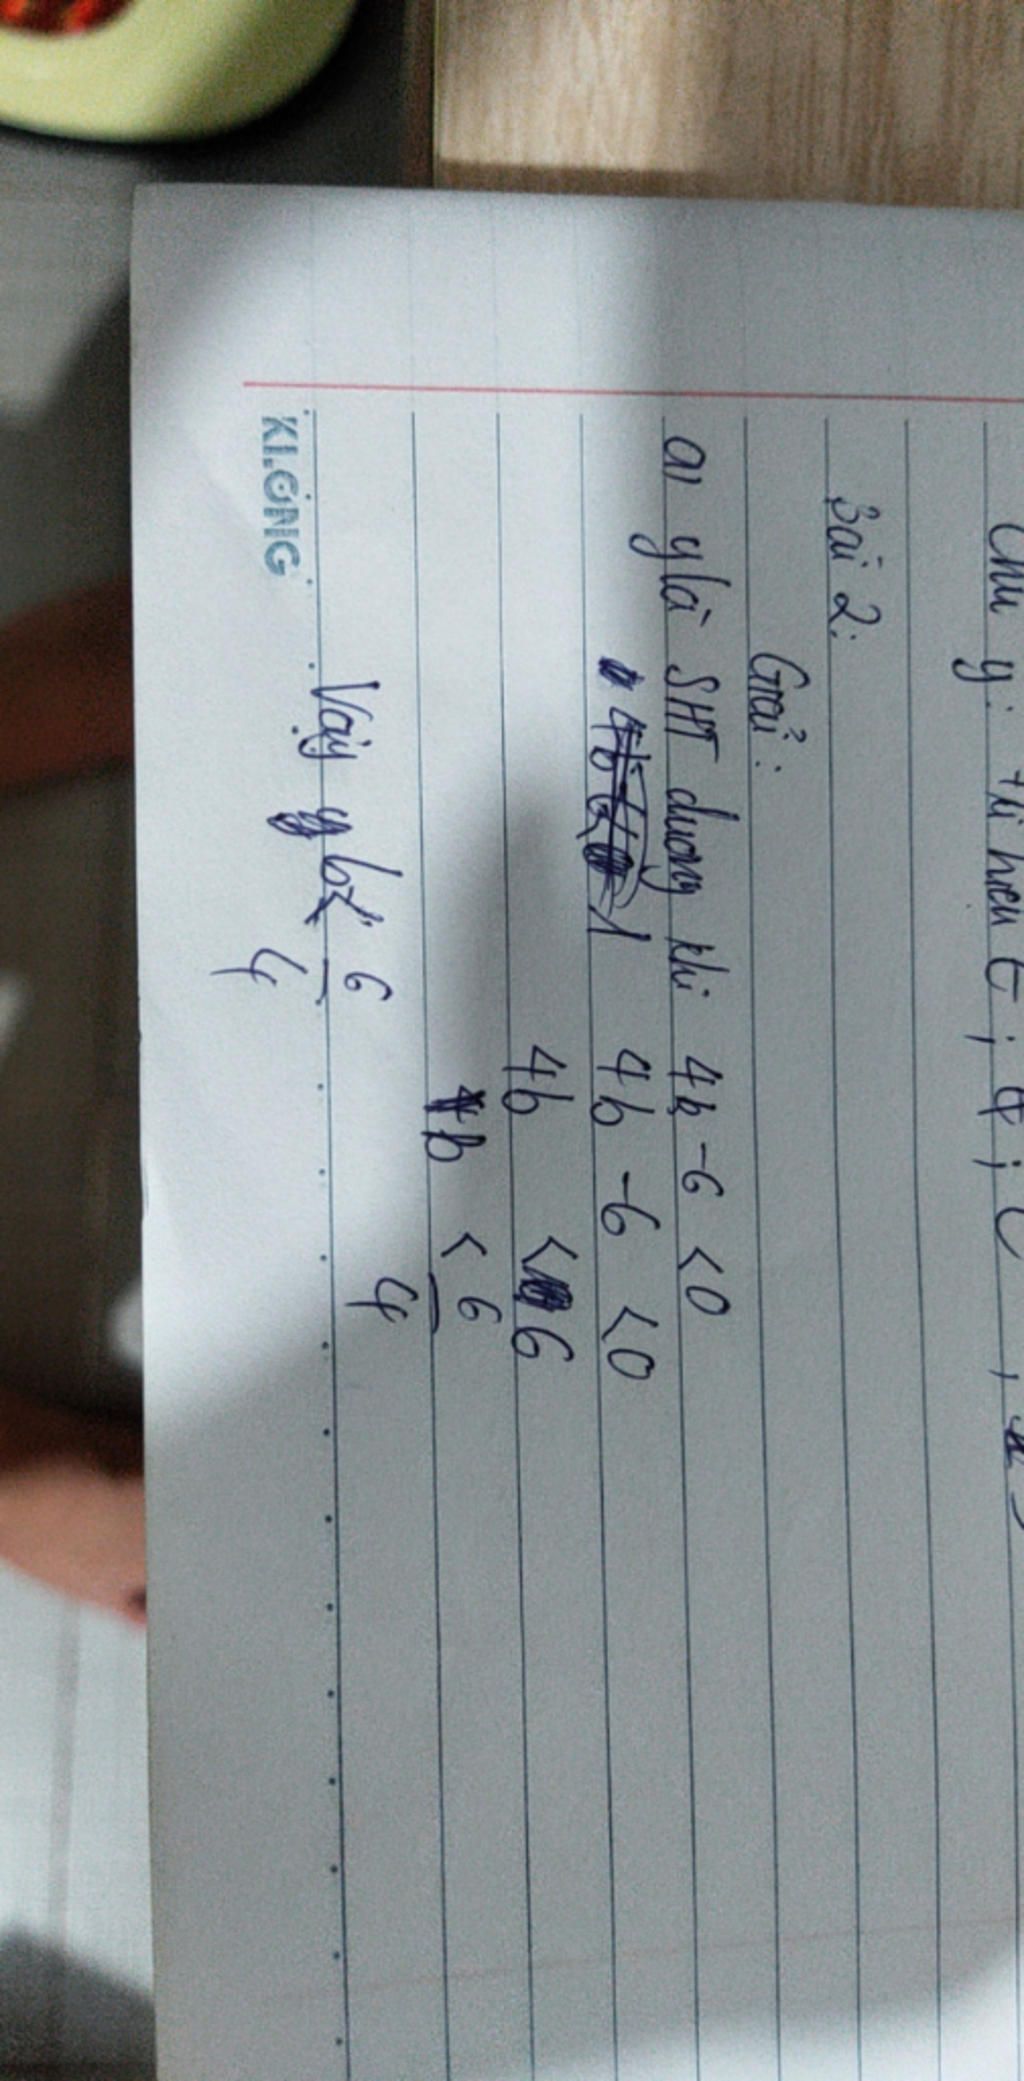 Chú ý: tử hiệu
Bài 2:
Giải:
a) y là SHT dương khi 4b - 6 < 0
4b - 6 < 0
4b < 6
b < 6/4
Vậy b < 6/4
KLONG